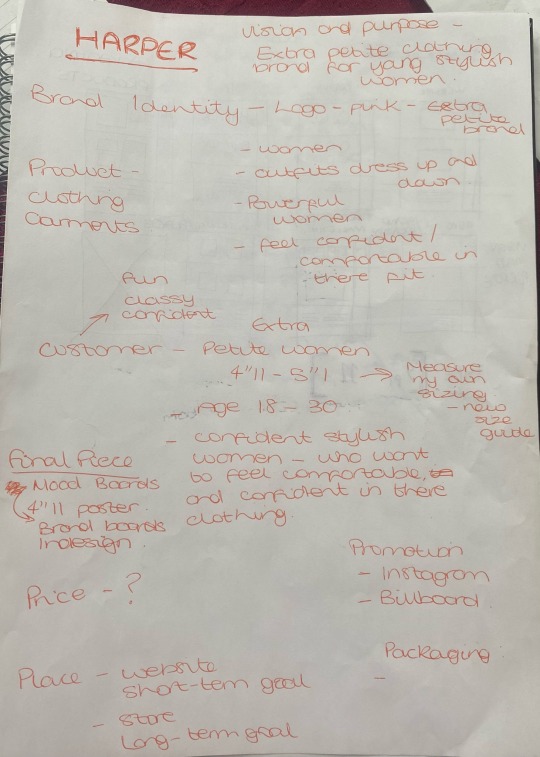 HARPER
Vision and purpose -
Extra petite clothing
brand for yang stylish
women.
Brand Identity - Logo - pink - Extra
petite
brand
- women
Product -
clothing
Garments
- outfits dress up and
down
- Powerful
women
- feel confident /
comfortable in
there fit.
fun
classy
confident
Extra
Customer - Petite women
4"11 - 5"1 → Measure
my own
sizing
- new
size
guide
- Age 18 - 30
- confident stylish
women - who want
to feel comfortable,
and confident in there
clothing.
Final Piece
Mood Boards
4"11 poster.
Brand boards
Indesign.
Promotion
- Instagram
- Billboard.
Price - ?
Packaging
-
Place - website
short-term goal
- store
Long-term goal